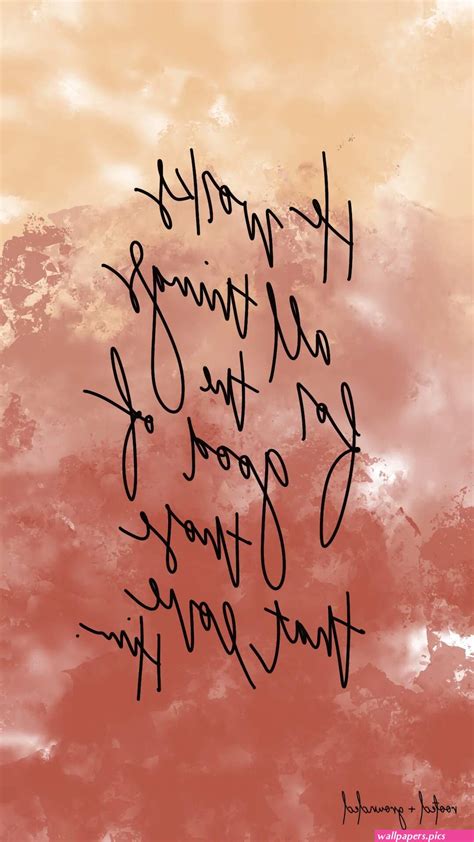 He works
all things
for the
good of
those
that love
Him.
rooted + grounded
wallpapers.pics